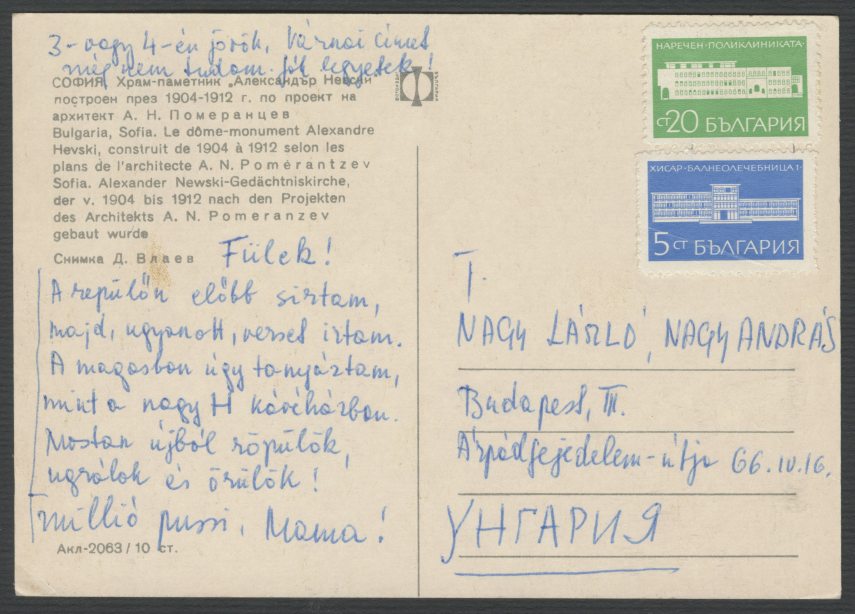 3-vagy 4-én jövök, Várnai címet
még nem tudom. jól legyetek!
СОФИЯ. Храм-паметник „Александър Невски"
построен през 1904-1912 г. по проект на
архитект А. Н. Померанцев
Bulgaria, Sofia. Le dôme-monument Alexandre
Hevski, construit de 1904 à 1912 selon les
plans de l'architecte A. N. Pomérantzev
Sofia. Alexander Newski-Gedächtniskirche,
der v. 1904 bis 1912 nach den Projekten
des Architekts A. N. Pomeranzev
gebaut wurde
Снимка Д. Влаев
Fülek!
A repülőn előbb sirtam,
majd, ugyanott, verset irtam.
A magasban úgy tanyáztam,
mint a nagy H kávéházban.
Mostan újból röpülök,
ugrálok és örülök!
millió pussi, Mama!
Акл-2063/10 ст.
НАРЕЧЕН·ПОЛИКЛИНИКАТА·
СТ 20 БЪЛГАРИЯ
ХИСАР·БАЛНЕОЛЕЧЕБНИЦА 1·
5 СТ БЪЛГАРИЯ
T.
NAGY LÁSZLÓ, NAGY ANDRÁS
Budapest, III.
Árpádfejedelem-útja 66. IV. 16.
УНГАРИЯ